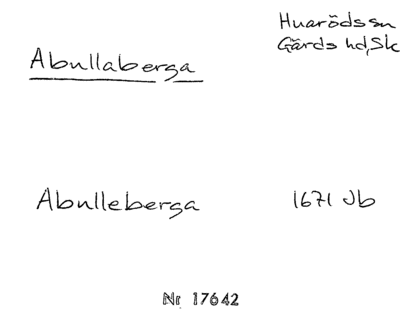 Abullaberga
Huarödssn
Gärds hd, Sk
Abulleberga
1671 Jb
Nr 17642